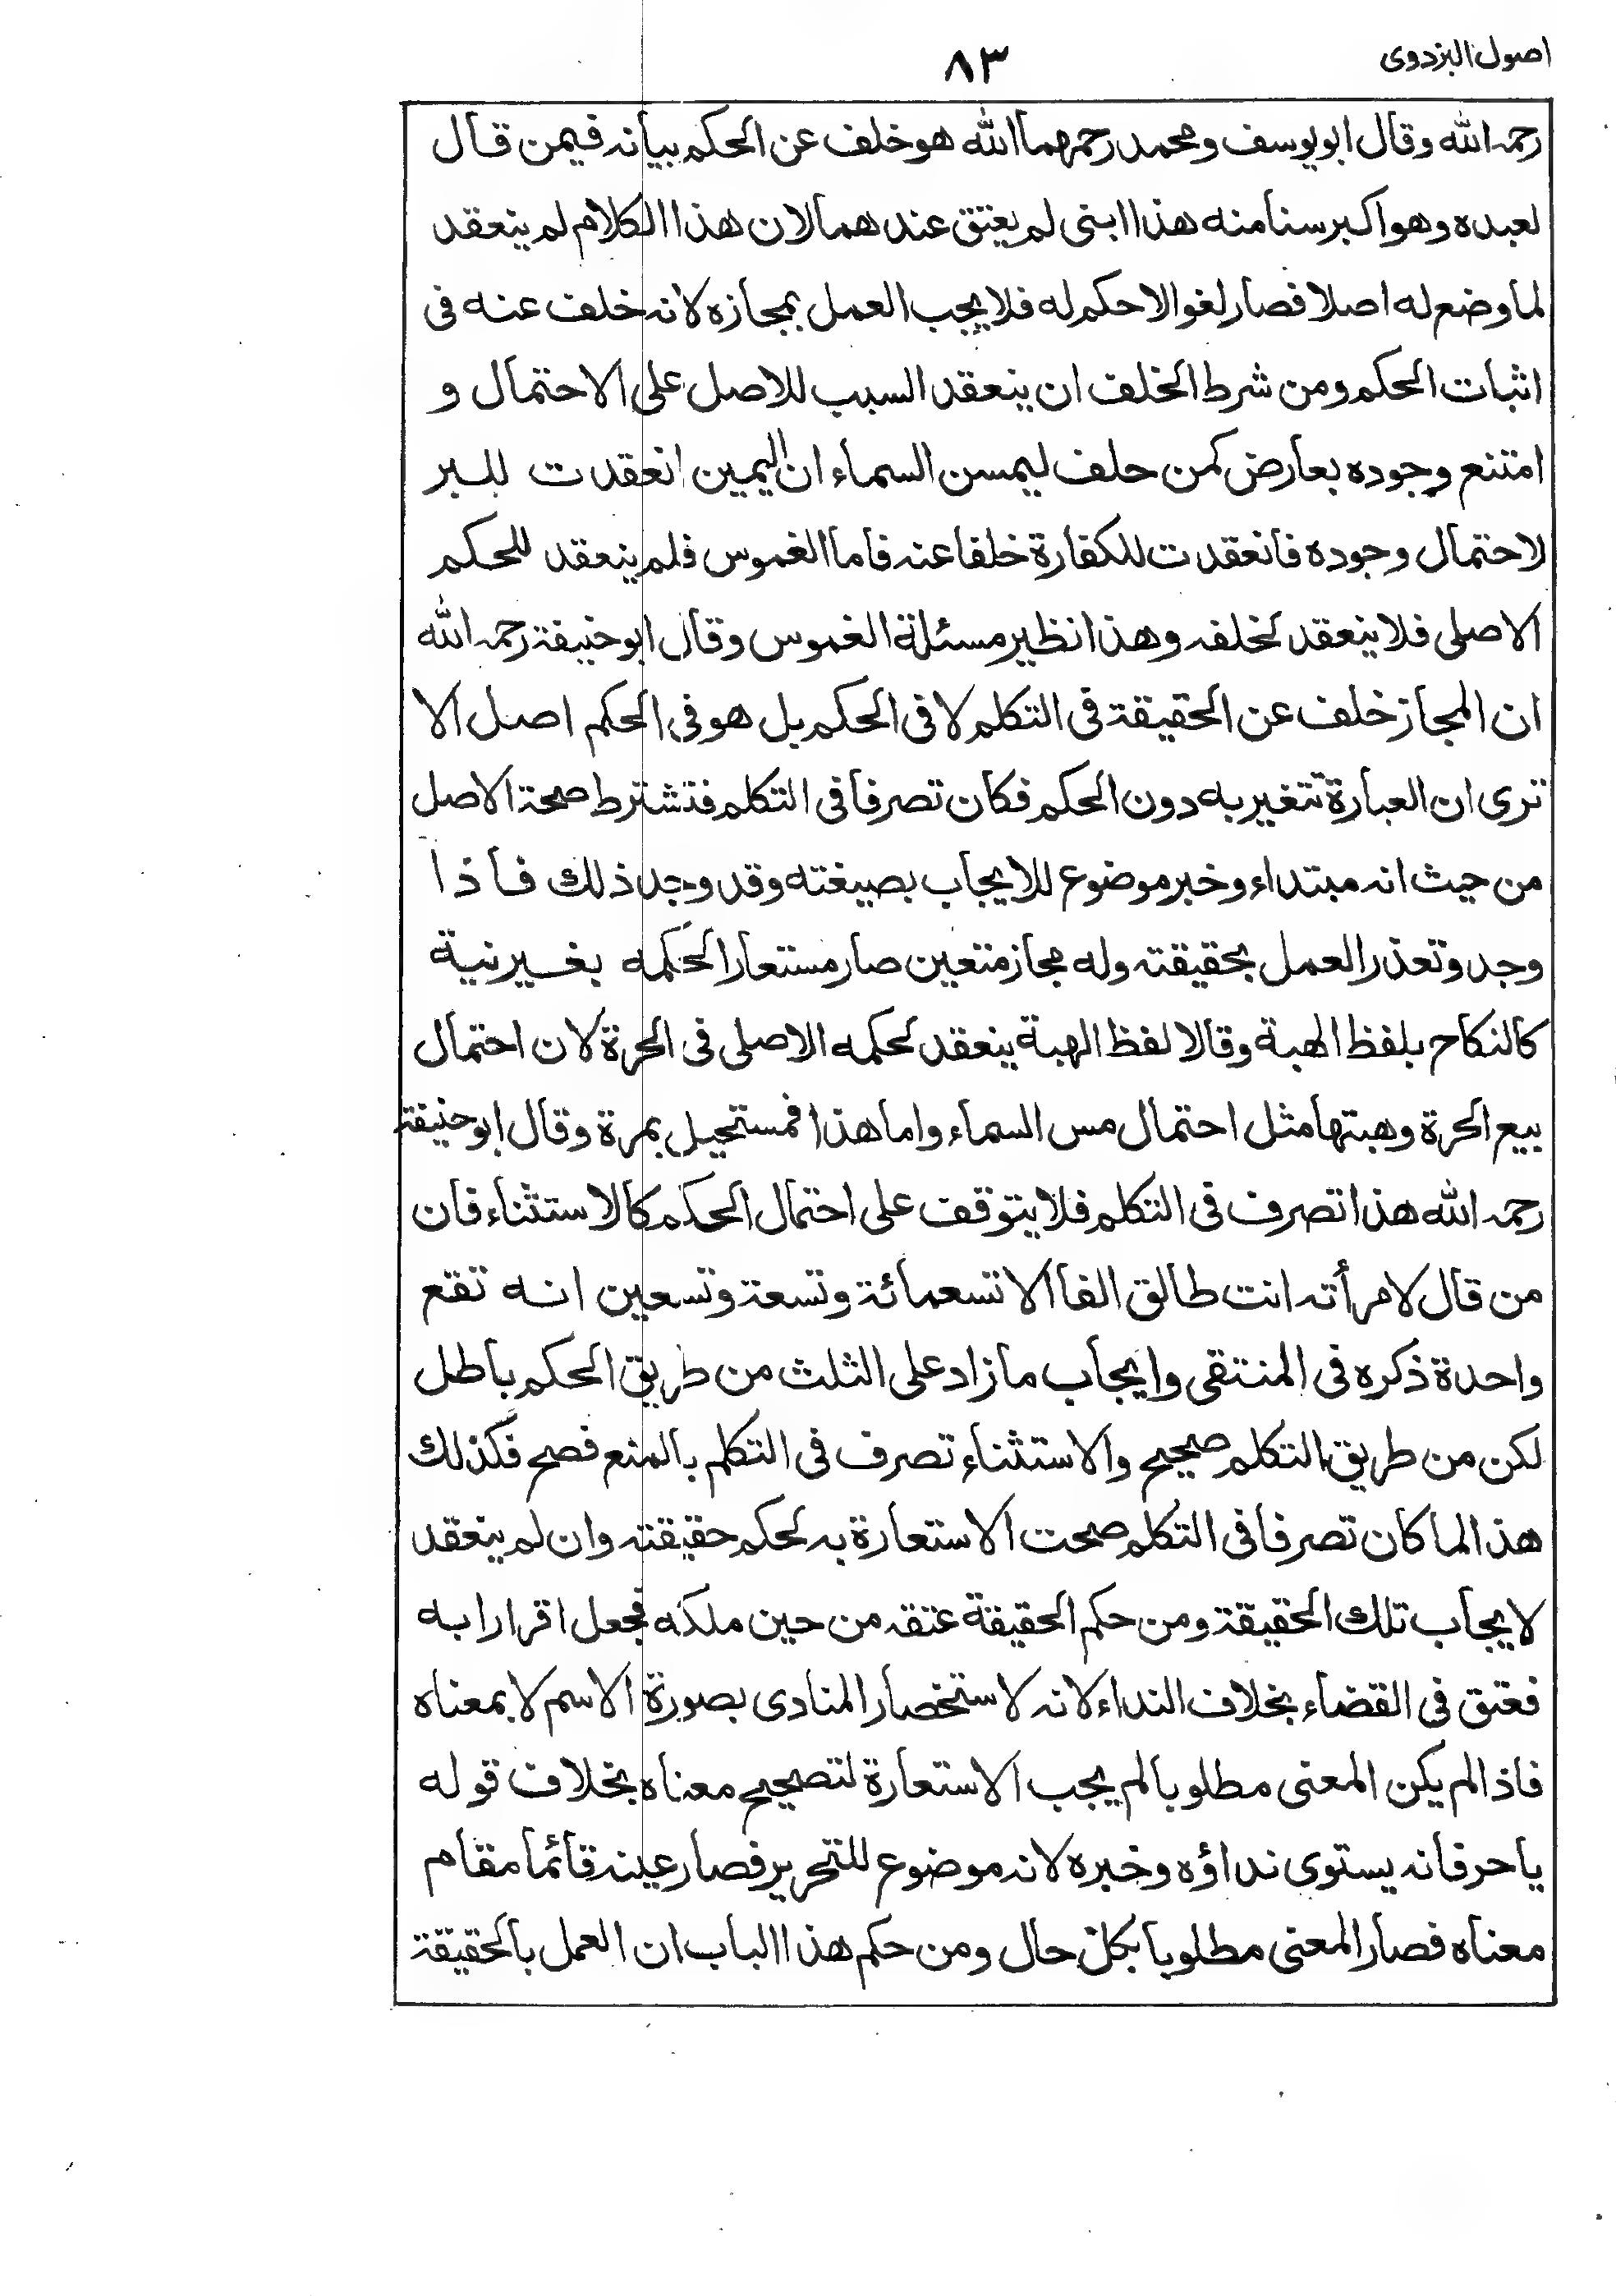 اصول البزدوی
٨٣
رحمہ الله وقال ابو یوسف و محمد رحمهما الله هو خلف عن الحكم بیانہ فیمن قال
لعبده وهو اكبر سنا منه هذا ابنی لم یعتق عندهما لان هذا الكلام لم ینعقد
لما وضع له اصلا فصار لغوا لا حكم له فلا یجب العمل بمجازه لانہ خلف عنه فی
اثبات الحكم ومن شرط الخلف ان ینعقد السبب للاصل علی الاحتمال و
امتنع وجوده بعارض كمن حلف لیمسن السماء ان الیمین انعقدت للبر
لاحتمال وجوده فانعقدت للكفارة خلفا عنہ فاما الغموس فلم ینعقد للحكم
الاصلی فلا ینعقد لخلفہ وهذا نظیر مسئلة الغموس وقال ابو حنیفة رحمہ الله
ان المجاز خلف عن الحقیقة فی التكلم لا فی الحكم بل هو فی الحكم اصل الا
تری ان العبارة تتغیر به دون الحكم فكان تصرفا فی التكلم فتشترط صحة الاصل
من حیث انہ مبتداء وخبر موضوع للایجاب بصیغته وقد وجد ذلك فاذا
وجد وتعذر العمل بحقیقتہ وله مجاز متعین صار مستعارا لحكمه بغیر نیة
كالنكاح بلفظ الهبة وقالا لفظ الهبة ینعقد لحكمه الاصلی فی الحرة لان احتمال
بیع الحرة وهبتها مثل احتمال مس السماء واما هذا فمستحیل بمرة وقال ابو حنیفة
رحمہ الله هذا تصرف فی التكلم فلا یتوقف علی احتمال الحكم كالاستثناء فان
من قال لامرأتہ انت طالق الفا الا تسعمائة وتسعة وتسعین انه تقع
واحدة ذكره فی المنتقی وایجاب ما زاد علی الثلث من طریق الحكم باطل
لكن من طریق التكلم صحیح والاستثناء تصرف فی التكلم بالمنع فصح فكذلك
هذا لما كان تصرفا فی التكلم صحت الاستعارة بہ لحكم حقیقتہ وان لم ینعقد
لایجاب تلك الحقیقة ومن حكم الحقیقة عتقہ من حین ملكه فجعل اقرارا به
فعتق فی القضاء بخلاف النداء لانہ لاستحضار المنادی بصورة الاسم لا بمعناه
فاذا لم یكن المعنی مطلوبا لم یجب الاستعارة لتصحیح معناه بخلاف قوله
یا حر فانہ یستوی نداؤه وخبره لانہ موضوع للتحریر فصار عینہ قائما مقام
معناه فصار المعنی مطلوبا بكل حال ومن حكم هذا الباب ان العمل بالحقیقة